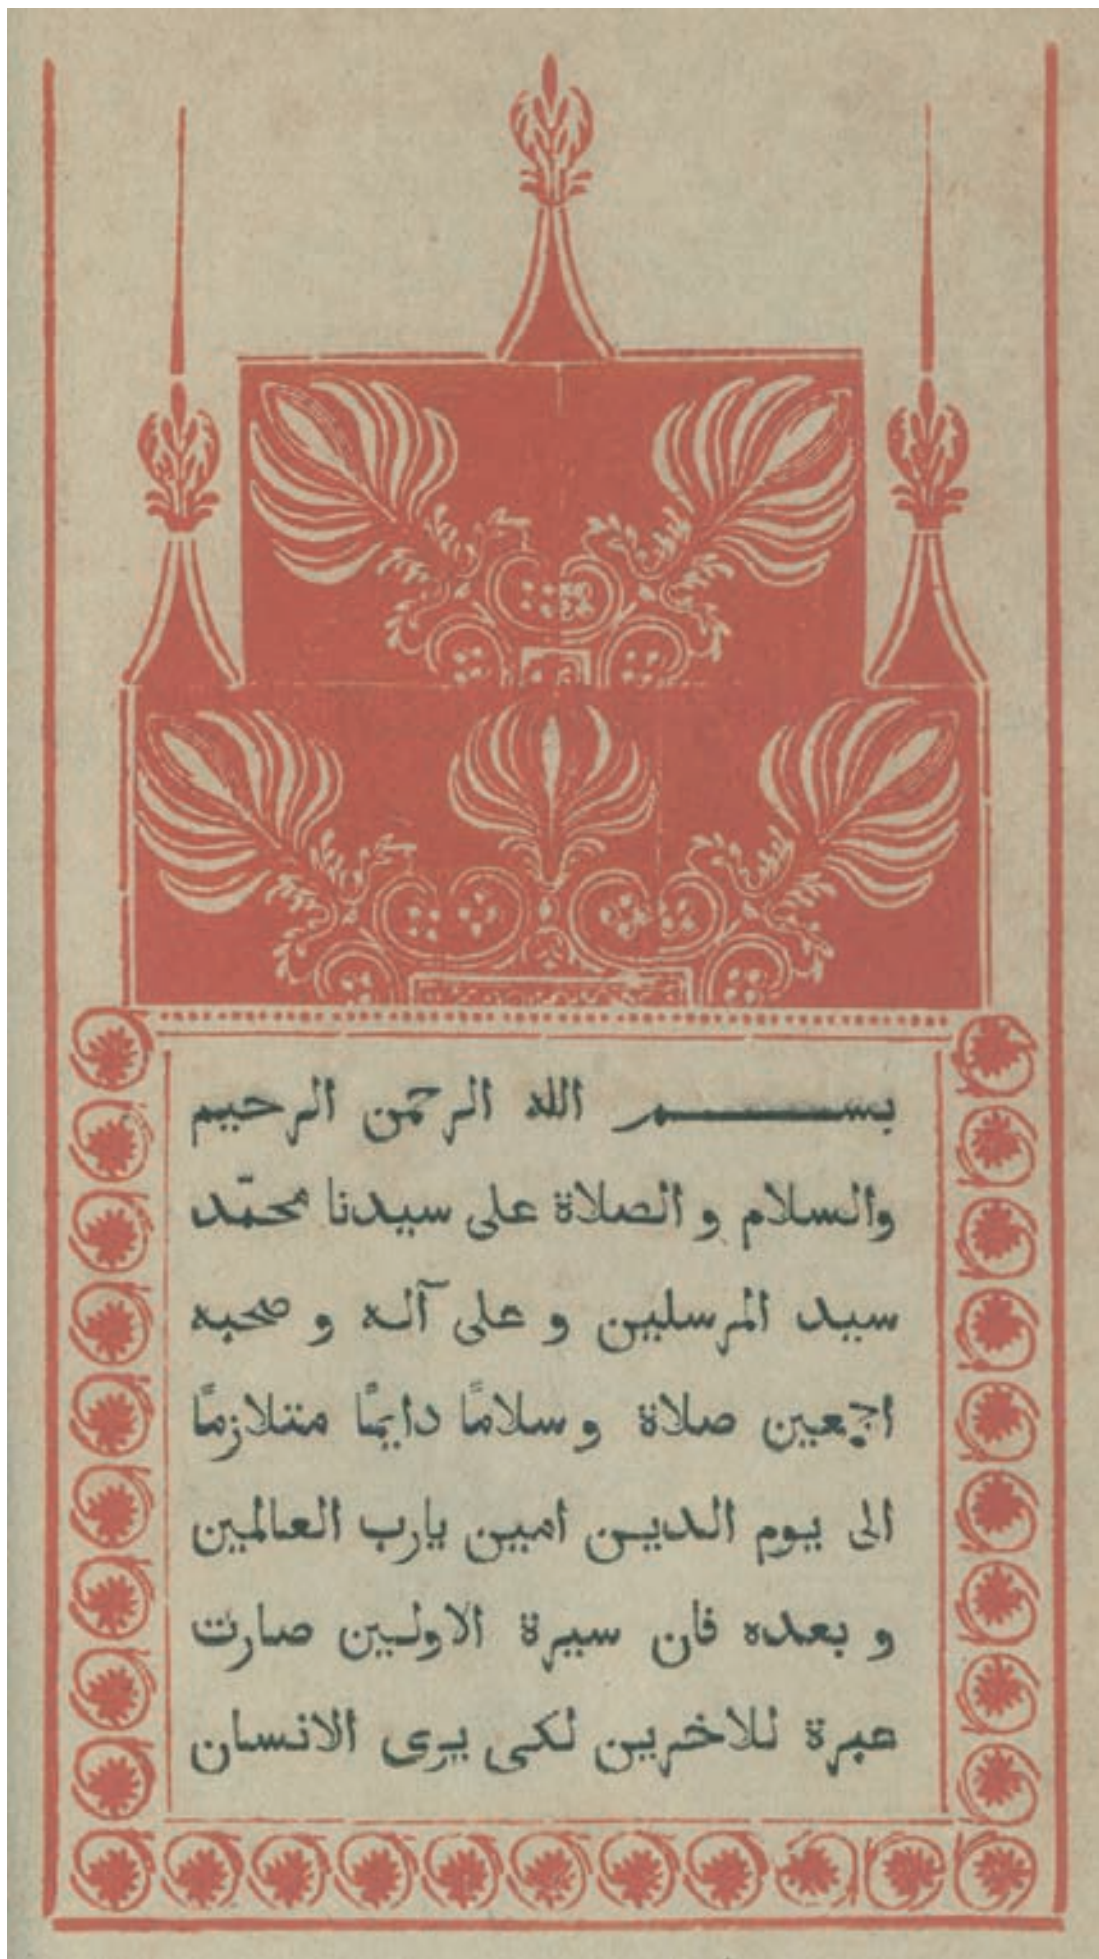 بســـــــم الله الرحمن الرحيم
والسلام و الصلاة على سيدنا محمّد
سيد المرسلين و على آله و صحبه
اجمعين صلاة وسلامًا دايمًا متلازمًا
الى يوم الدين امين يارب العالمين
و بعده فان سيرة الاولين صارت
عبرة للاخرين لكى يرى الانسان